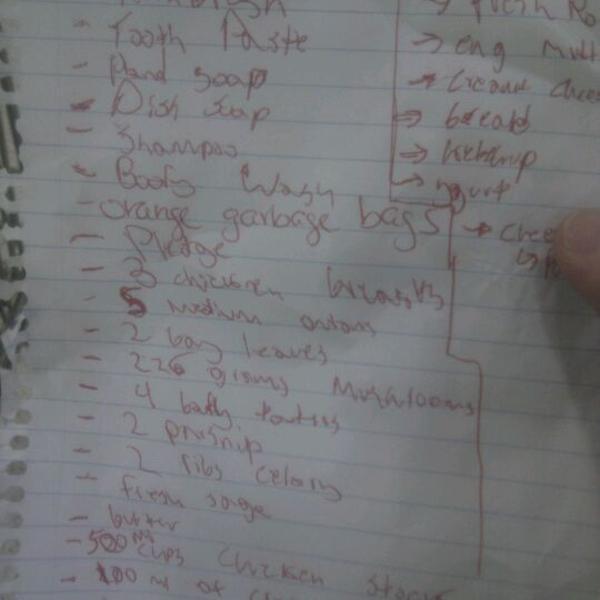 - Tooth Paste
- Hand Soap
- Dish Soap
- Shampoo
- Body Wash
- orange garbage bags
- Pledge
- 3 chicken breasts
- 5 medium onions
- 2 bay leaves
- 226 grams Mushrooms
- 4
- 2 prisnip
- 2 ribs Celary
- fresh sage
- butter
- 500 ml cups Chicken Stock
- 100 ml of
→ fresh Ro
→ eng muff
→ Cream Chee
→ bread
→ ketchup
→ yogurt
→ Chee